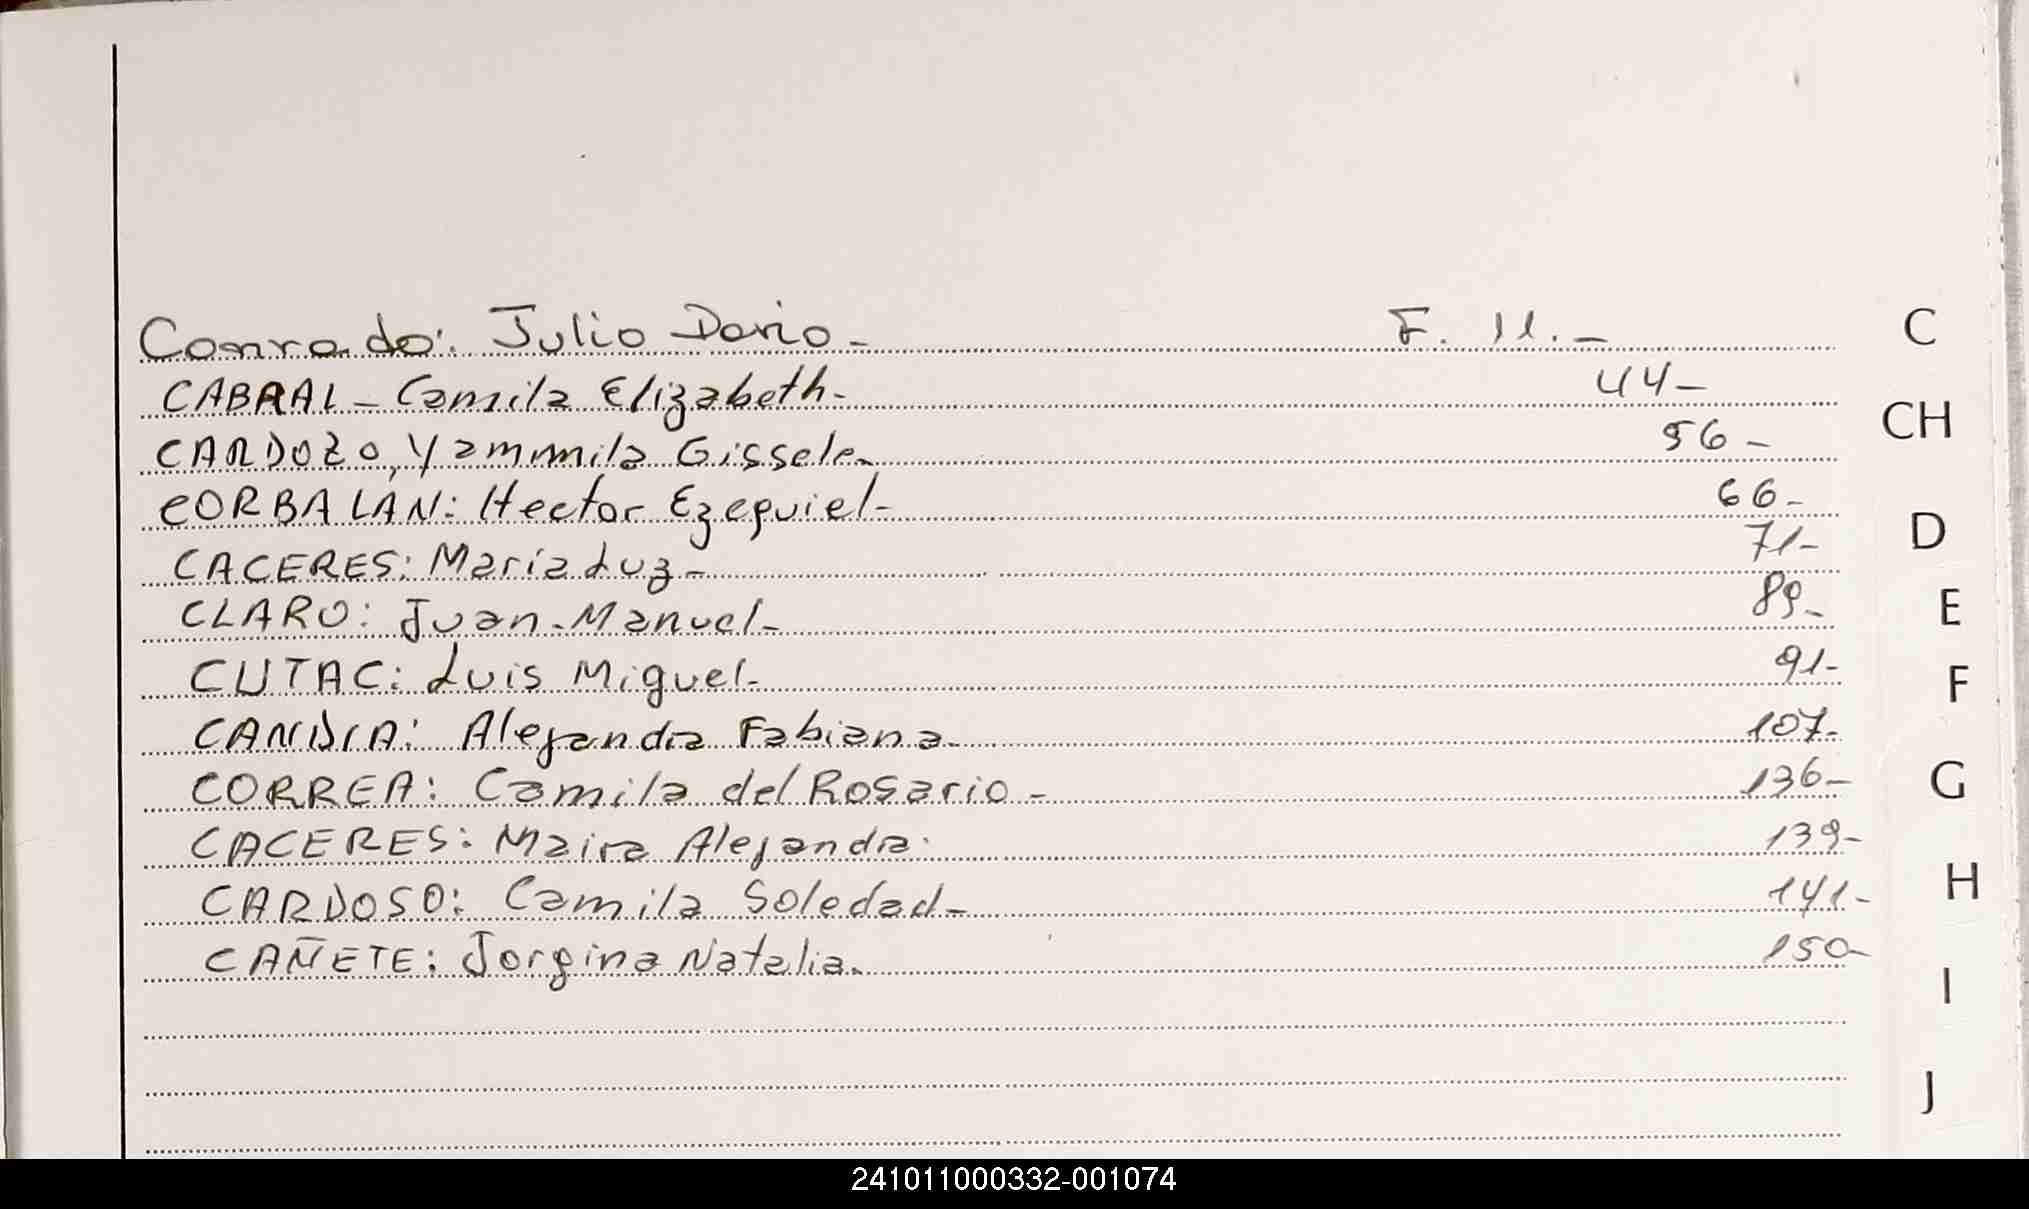 Conrado: Julio Dario - F. 11. -
CABRAL - Camila Elizabeth - 44 -
CARDOZO, Yammila Gissele - 56 -
CORBALÁN: Hector Ezequiel - 66 -
CACERES: María Luz - 71 -
CLARO: Juan Manuel - 89 -
CUTAC: Luis Miguel - 91 -
CANDIA: Alejandra Fabiana - 107 -
CORREA: Camila del Rosario - 136 -
CACERES: Maira Alejandra. 139 -
CARDOSO: Camila Soledad - 141 -
CAÑETE: Jorgina Natalia - 150 -
C
CH
D
E
F
G
H
I
J
241011000332-001074